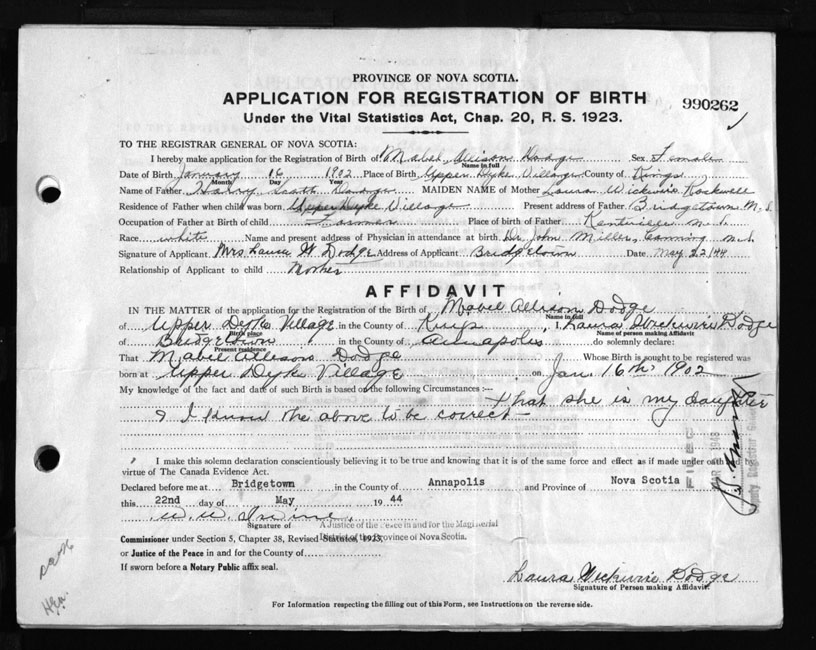 PROVINCE OF NOVA SCOTIA.
APPLICATION FOR REGISTRATION OF BIRTH
990262
Under the Vital Statistics Act, Chap. 20, R. S. 1923.
TO THE REGISTRAR GENERAL OF NOVA SCOTIA:
I hereby make application for the Registration of Birth of Mabel Allison Dodge Sex Female
Name in full
Date of Birth January 16 1902 Place of Birth Upper Dyke Village County of Kings
Month Day Year
Name of Father Harry Scott Dodge MAIDEN NAME of Mother Laura Wickwire Rockwell
Residence of Father when child was born Upper Dyke Village Present address of Father Bridgetown N. S.
Occupation of Father at Birth of child Farmer Place of birth of Father Kentville N.S.
Race white Name and present address of Physician in attendance at birth Dr. John Miller, Canning N.S.
Signature of Applicant Mrs Laura W Dodge Address of Applicant Bridgetown Date May 22/44
Relationship of Applicant to child Mother
AFFIDAVIT
IN THE MATTER of the application for the Registration of the Birth of Mabel Allison Dodge
Name in full
of Upper Dyke Village in the County of Kings I, Laura Wickwire Dodge
Birth place Name of person making Affidavit
of Bridgetown in the County of Annapolis do solemnly declare:
Present residence
That Mabel Allison Dodge Whose Birth is sought to be registered was
born at Upper Dyke Village on Jan 16th 1902
My knowledge of the fact and date of such Birth is based on the following Circumstances :—
that she is my daughter
& I know the above to be correct —
I make this solemn declaration conscientiously believing it to be true and knowing that it is of the same force and effect as if made under oath by
virtue of The Canada Evidence Act.
Declared before me at Bridgetown in the County of Annapolis and Province of Nova Scotia
this 22nd day of May 1944
Signature of A Justice of the Peace in and for the Magisterial
Commissioner under Section 5, Chapter 38, Revised Statutes, 1923,
District of the Province of Nova Scotia.
or Justice of the Peace in and for the County of
If sworn before a Notary Public affix seal.
Laura Wickwire Dodge
Signature of Person making Affidavit.
For Information respecting the filling out of this Form, see Instructions on the reverse side.
FILED
Deputy Registrar